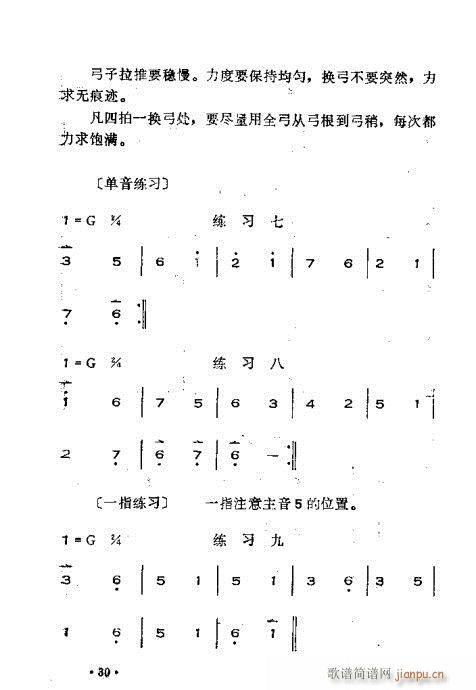 弓子拉推要稳慢。力度要保持均匀，换弓不要突然，力
求无痕迹。
凡四拍一换弓处，要尽量用全弓从弓根到弓稍，每次都
力求饱满。
〔单音练习〕
1=G 2/4 练习七
3 5 | 6 1 | 2 1 | 7 6 | 2 1 |
7 6 :‖
1=G 2/4 练习八
1 6 | 7 5 | 6 3 | 4 2 | 5 1 |
2 7 | 6 7 | 6 — :‖
〔一指练习〕 一指注意主音5的位置。
1=G 2/4 练习九
3 6 | 5 1 | 5 1 | 3 6 | 3 5 |
1 6 | 5 1 | 6 1 :‖
·30·
歌谱简谱网 jianpu.cn